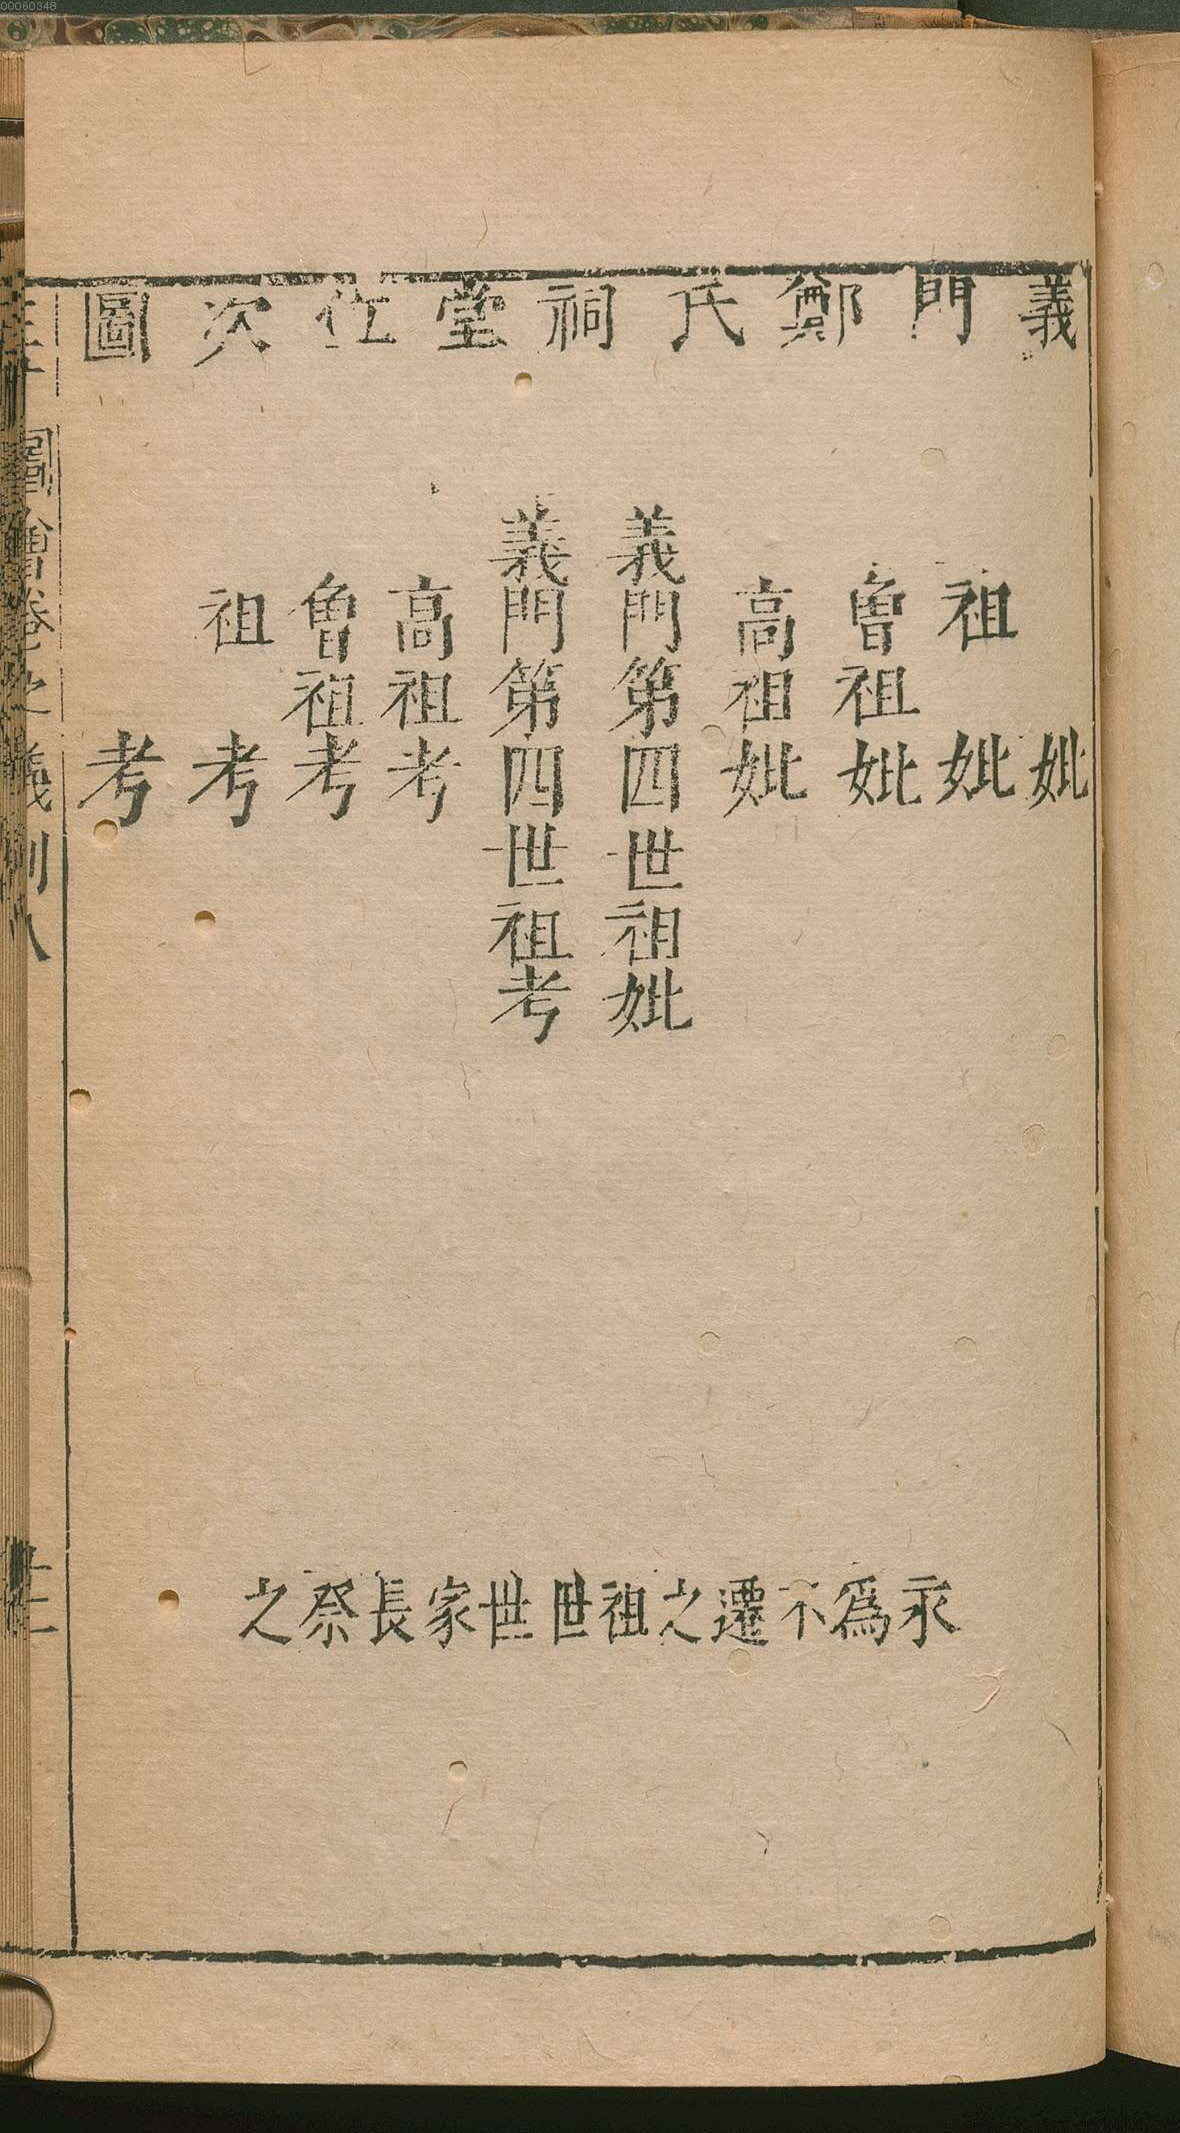 00060348
義門鄭氏祠堂位次圖
妣
祖妣
曾祖妣
高祖妣
義門第四世祖妣
義門第四世祖考
高祖考
曾祖考
祖考
考
永爲不遷之祖世世家長祭之